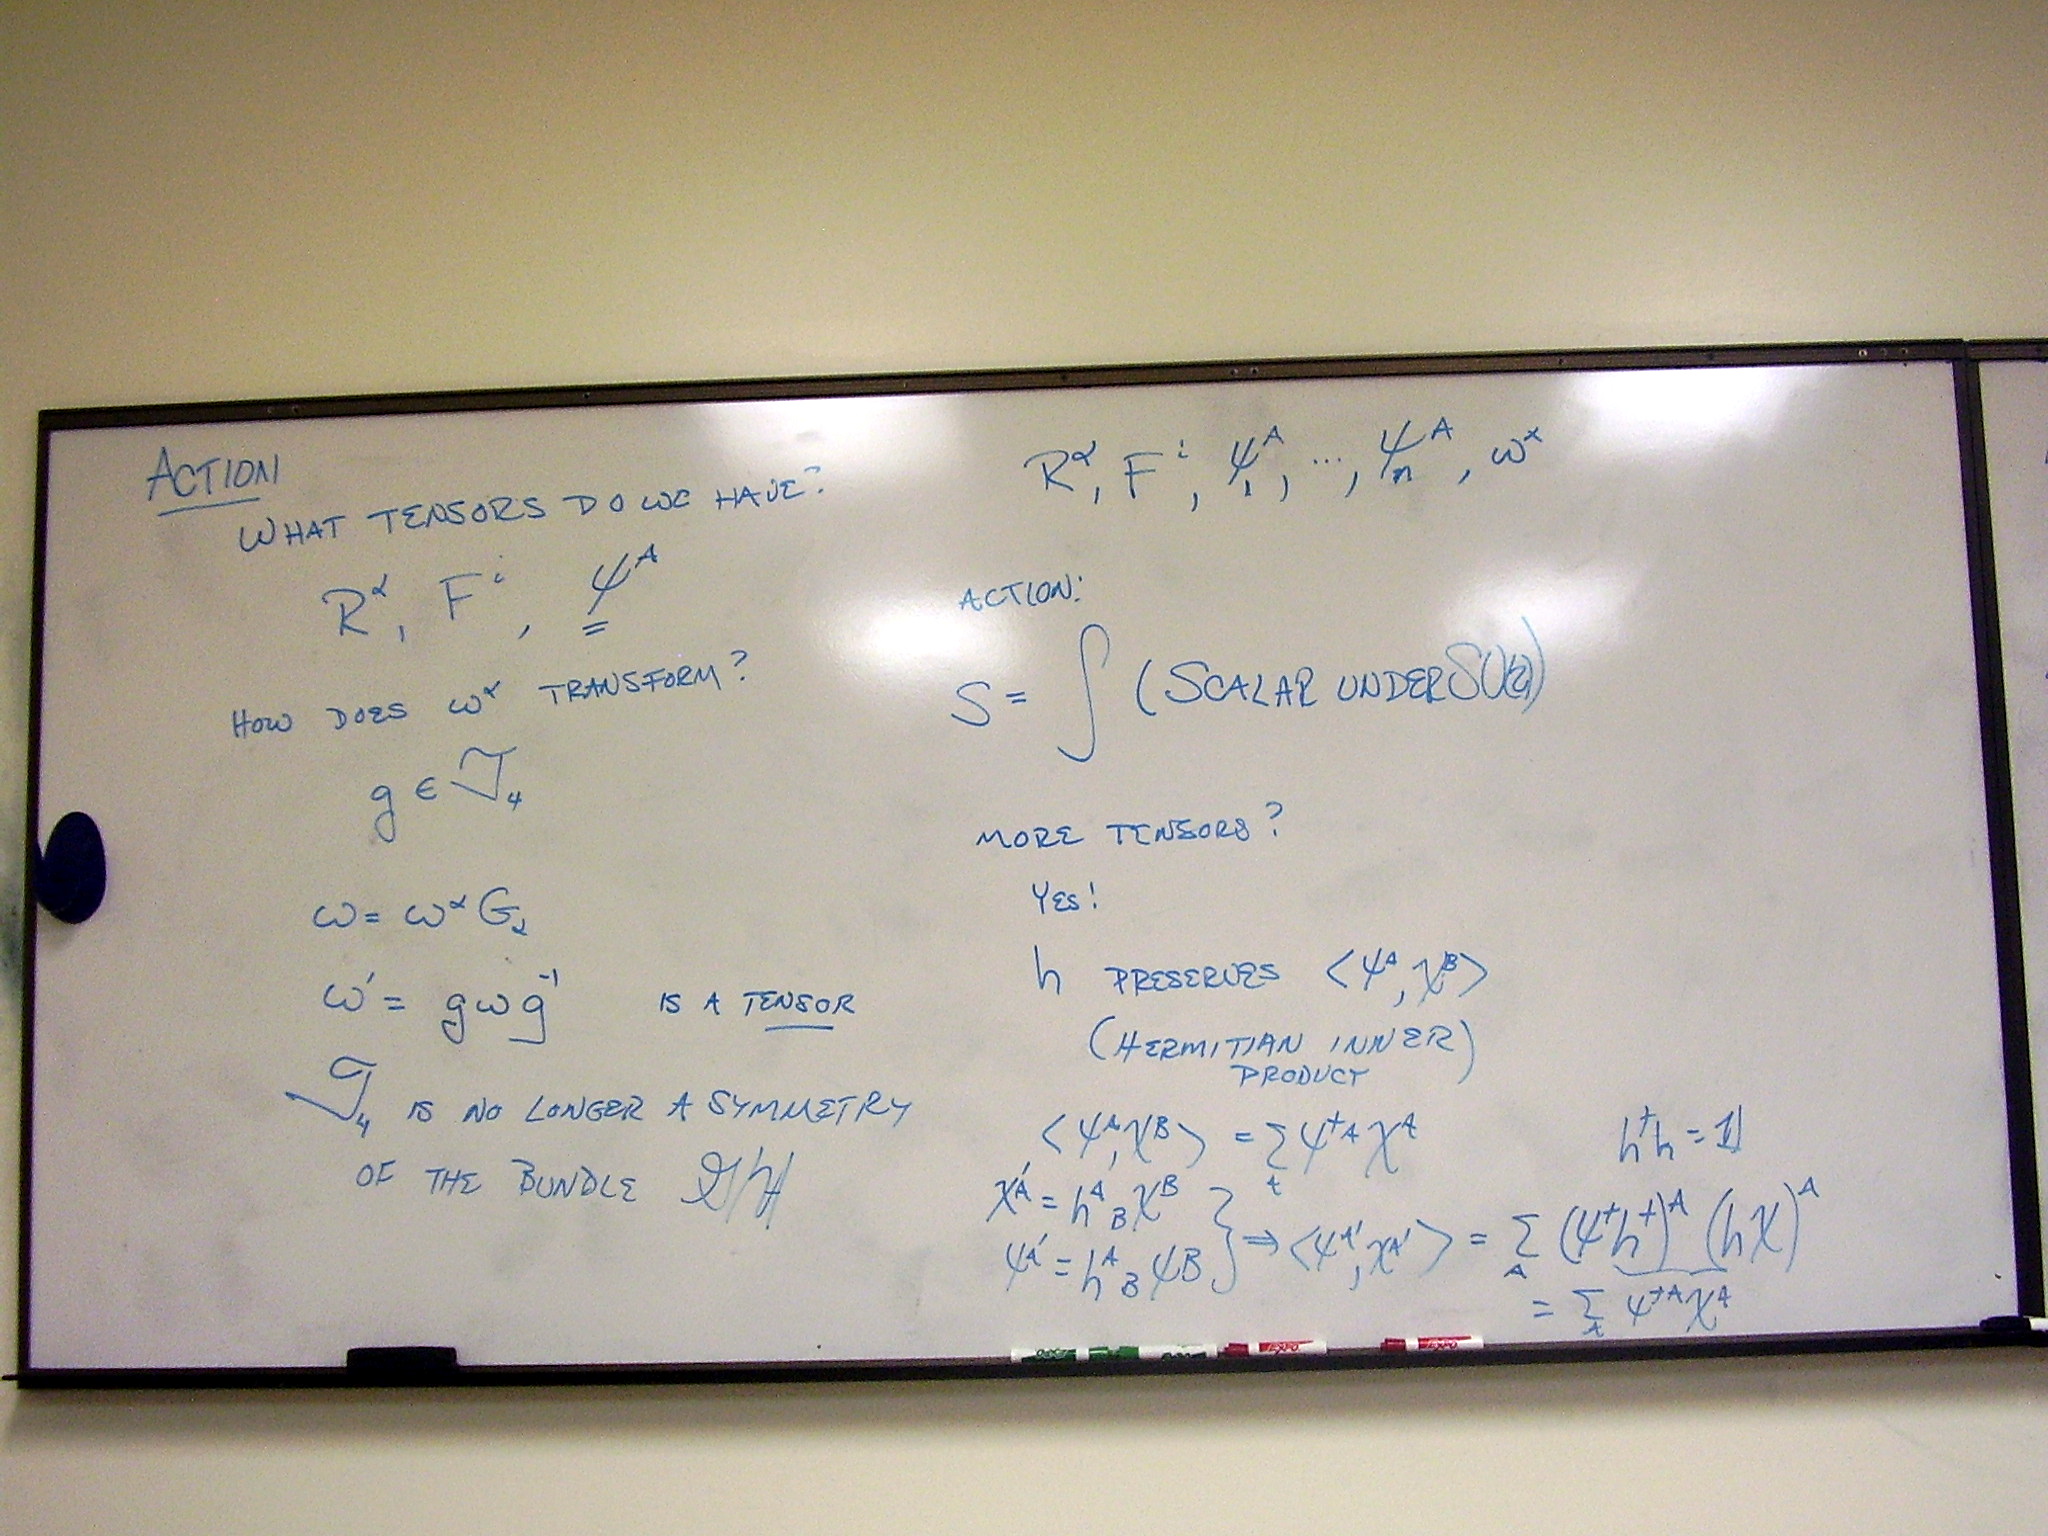 ACTION
WHAT TENSORS DO WE HAVE?
R^α, F^i, ψ^A
HOW DOES ω^α TRANSFORM?
g ∈ 𝒯_4
ω = ω^α G_α
ω' = g ω g^-1 IS A TENSOR
𝒯_4 IS NO LONGER A SYMMETRY
OF THE BUNDLE
R^α, F^i, ψ_1^A, ..., ψ_n^A, ω^α
ACTION:
S = ∫ (SCALAR UNDER SU(2))
MORE TENSORS?
YES!
h PRESERVES <ψ^A, χ^B>
(HERMITIAN INNER
PRODUCT)
<ψ^A, χ^B> = Σ_A ψ^†A χ^A h^†h = 1
χ^A' = h^A_B χ^B
ψ^A' = h^A_B ψ^B } ⇒ <ψ^A', χ^A'> = Σ_A (ψ^†h^†)^A (hχ)^A
= Σ_A ψ^†A χ^A
EXPO
EXPO